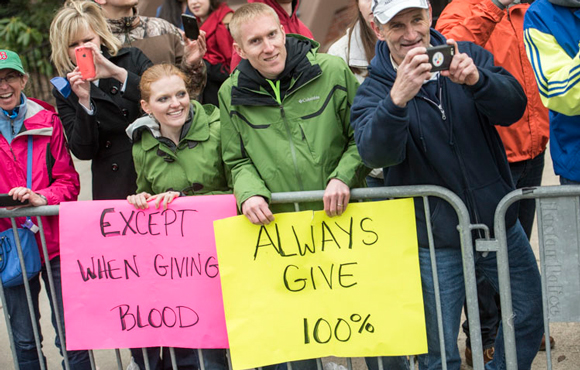 EXCEPT
WHEN GIVING
BLOOD
ALWAYS
GIVE
100%
Columbia